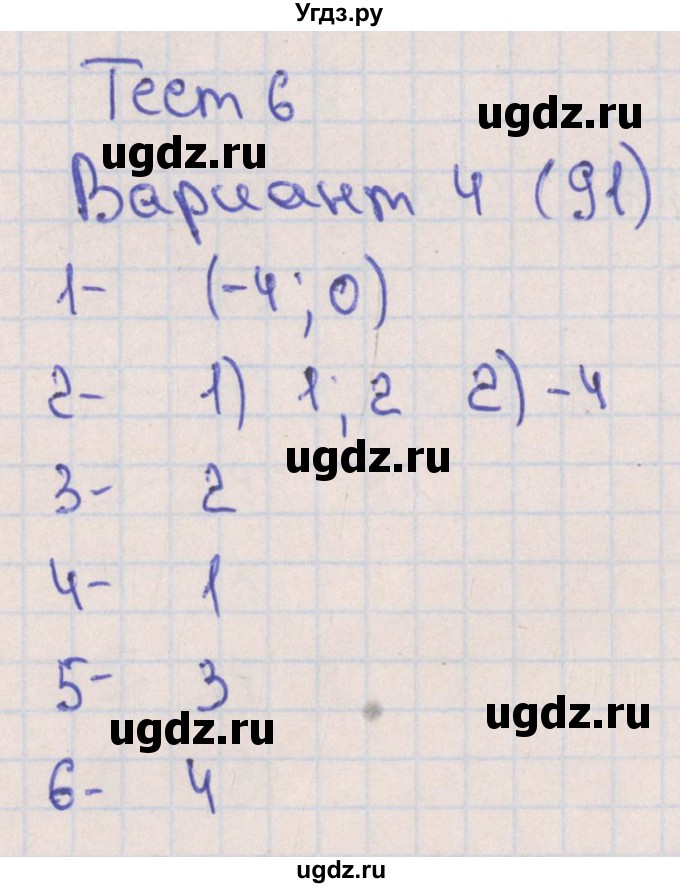 Угдз.ру
Тест 6
ugdz.ru
ugdz.ru
Вариант 4 (91)
1- (-4; 0)
2- 1) 1; 2 2) -4
ugdz.ru
3- 2
4- 1
5- 3
ugdz.ru
ugdz.ru
6- 4
ugdz.ru